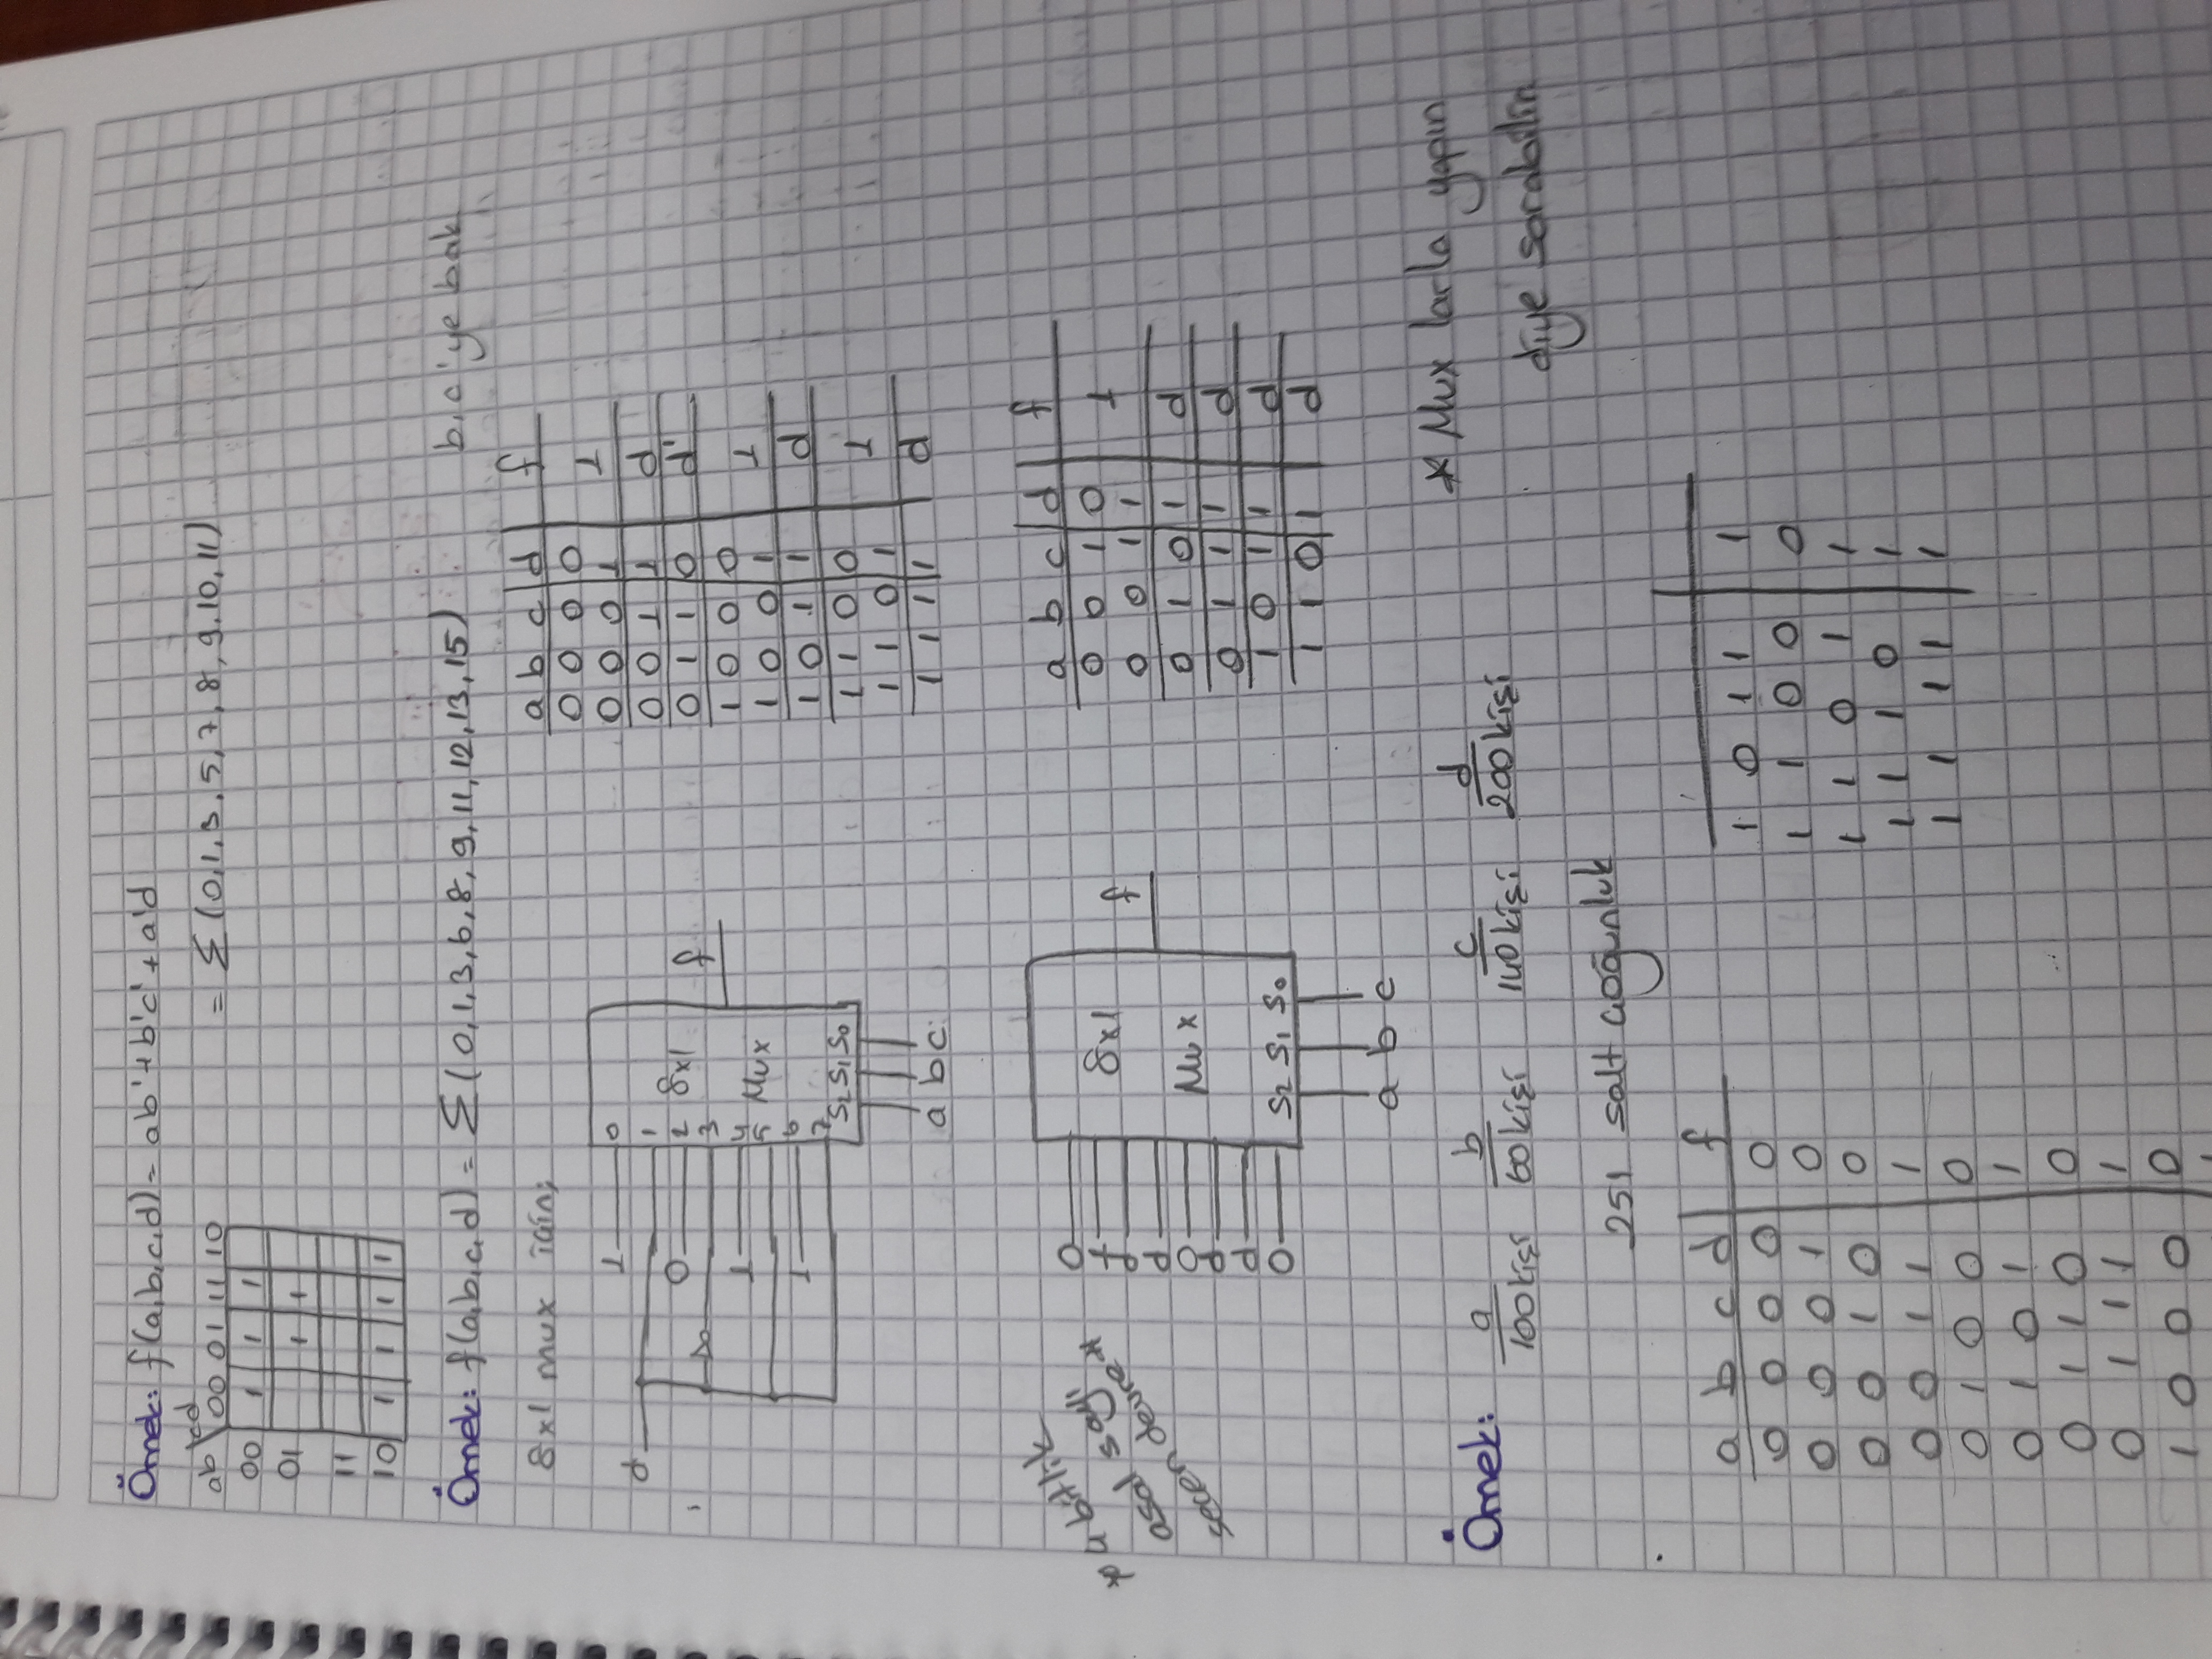 Örnek: f(a,b,c,d) = ab' + b'c' + a'd
= Σ (0,1,3,5,7,8,9,10,11)
ab \ cd 00 01 11 10
00 1 1 1
01 1 1
11
10 1 1 1 1
Örnek: f(a,b,c,d) = Σ (0,1,3,6,8,9,11,12,13,15)
b,c'ye bak
8x1 mux için;
1 0
d 1
0 2
3
1 4
5
1 6
7
8x1
Mux
f
S2 S1 S0
a b c
a b c d f
0 0 0 0
0 0 0 1 1
0 0 1 1 d
0 1 1 0 d'
1 0 0 0
1 0 0 1 1
1 0 1 1 d
1 1 0 0
1 1 0 1 1
1 1 1 1 d
4 bitlik
asal sayı
seçen devre*
0
1
d
d
0
d
d
0
8x1
Mux
f
S2 S1 S0
a b c
a b c d f
0 0 1 0
0 0 1 1 1
0 1 0 1 d
0 1 1 1 d
1 0 1 1 d
1 1 0 1 d
Örnek: a b c d
100 kişi 60 kişi 140 kişi 200 kişi
* Mux larla yapın
diye sorabilir
251 salt çoğunluk
a b c d f
0 0 0 0 0
0 0 0 1 0
0 0 1 0 0
0 0 1 1 1
0 1 0 0 0
0 1 0 1 1
0 1 1 0 0
0 1 1 1 1
1 0 0 0 0
1 0 1 1 1
1 1 0 0 0
1 1 0 1 1
1 1 1 0 1
1 1 1 1 1